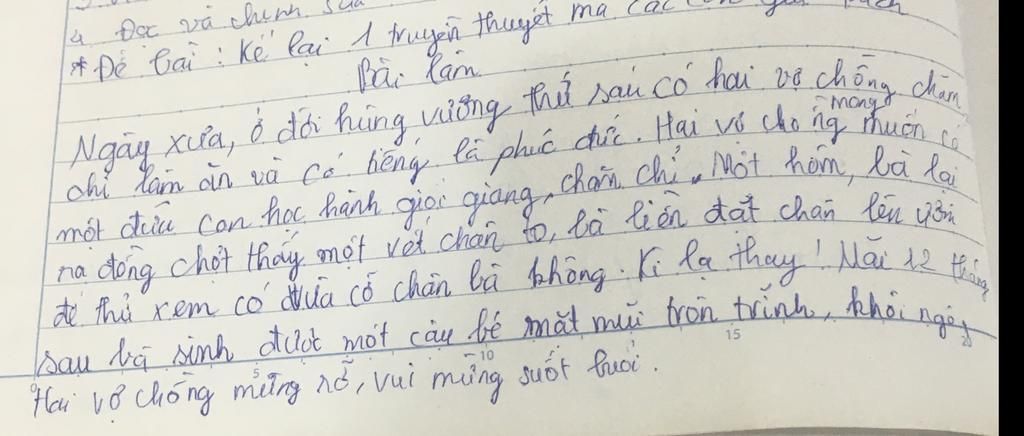 4. Đọc và chỉnh sửa
* Đề bài : Kể lại 1 truyền thuyết mà các con
Bài làm
Ngày xưa, ở đời hùng vương thứ sáu có hai vợ chồng chăm
chỉ làm ăn và có tiếng là phúc đức. Hai vợ chồng mong muốn có
một đứa con học hành giỏi giang, chăn chỉ. Một hôm, bà lại
ra đồng chợt thấy một vết chân to, bà liền đặt chân lên ướm
để thử xem có vừa cỡ chân bà không. Kì lạ thay! Mãi 12 tháng
sau bà sinh được một cậu bé mặt mũi tròn trĩnh, khôi ngô,
Hai vợ chồng mừng rỡ, vui mừng suốt buổi.
5 10 15